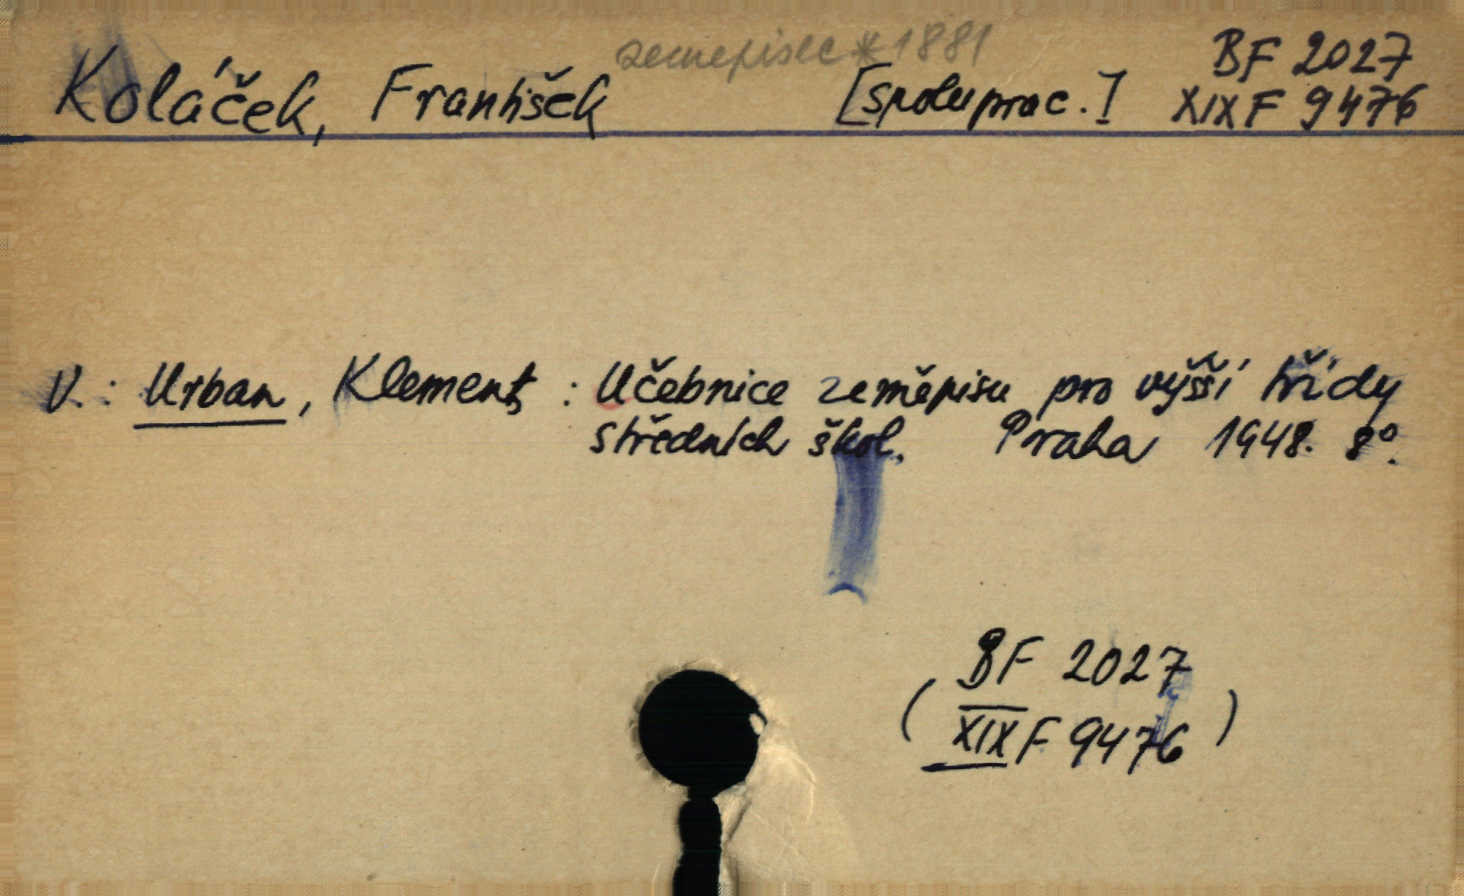 zeměpisec * 1881
BF 2027
Koláček, František [spoluprac.] XIX F 9476
V.: Urban, Klement : Učebnice zeměpisu pro vyšší třídy
středních škol. Praha 1948. 8°.
BF 2027
( XIX F 9476 )